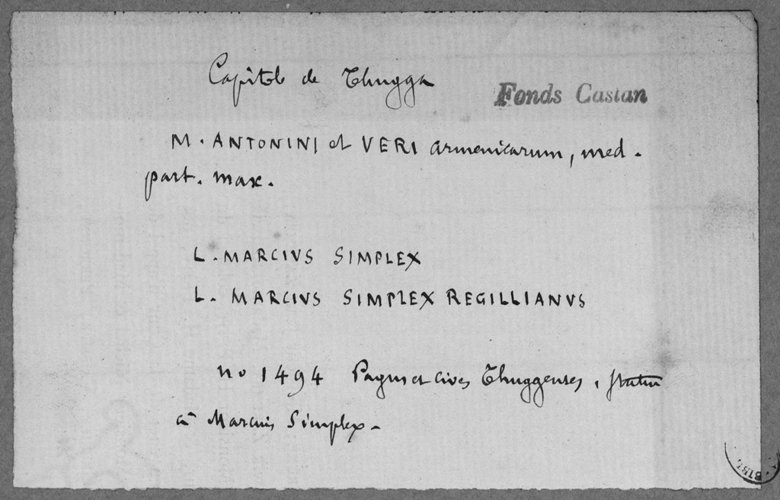 Capitole de Thugga
Fonds Castan
M. ANTONINI et VERI armenicarum, med.
part. max.
L. MARCIVS SIMPLEX
L. MARCIVS SIMPLEX REGILLIANVS
no 1494 Pagus et cives Thuggenses, statue
à Marcius Simplex.
BIBL.